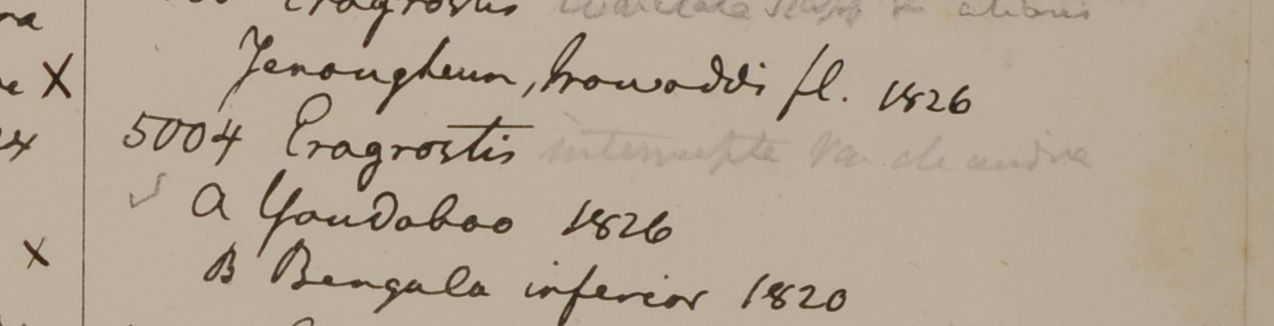 Eragrostis
Jenangheum, Irrowaddi fl. 1826
X
5004 Eragrostis interrupta Var
A Yandaboo 1826
X
B Bengala inferior 1820